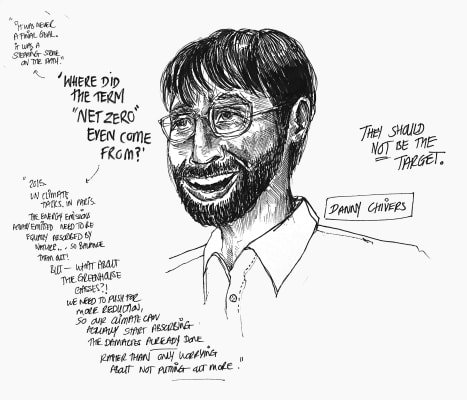 "IT WAS NEVER
A FINAL GOAL.
IT WAS A
STEPPING STONE
ON THE PATH."
'WHERE DID
THE TERM
"NET ZERO"
EVEN COME
FROM?'
THEY SHOULD
NOT BE THE
TARGET.
DANNY CHIVERS
"2015.
UN CLIMATE
TALKS. IN PARIS.
THE ENERGY EMISSION
EMITTED NEED TO BE
EQUALLY ABSORBED BY
NATURE... SO BALANCE
THEM OUT!
BUT - WHAT ABOUT
THE GREENHOUSE
GASSES?!
WE NEED TO PUSH FOR
MORE REDUCTION,
SO OUR CLIMATE CAN
ACTUALLY START ABSORBING
THE DAMAGES ALREADY DONE
RATHER THAN ONLY WORRYING
ABOUT NOT PUTTING OUT MORE."